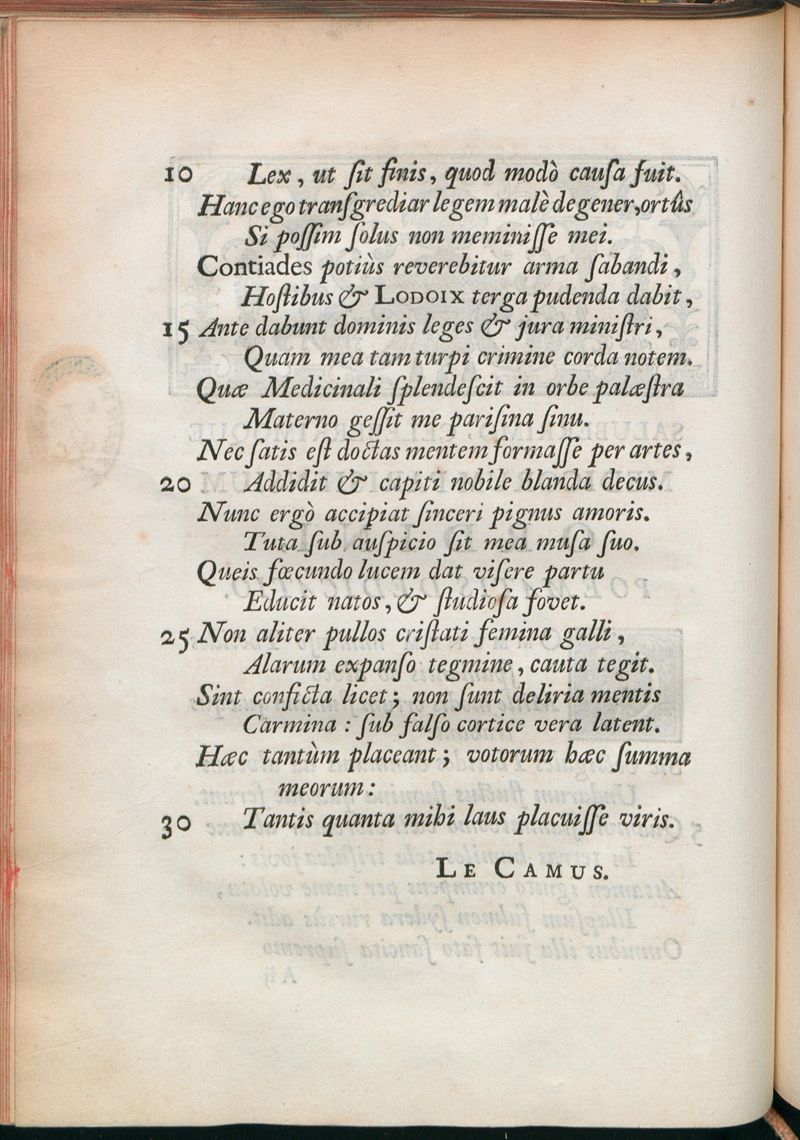 10 Lex, ut ſit finis, quod modò cauſa fuit.
Hanc ego tranſgrediar legem malè degener, ortûs
Si poſſim ſolus non meminiſſe mei.
Contiades potiùs reverebitur arma ſabandi,
Hoſtibus & LODOIX terga pudenda dabit,
15 Ante dabunt dominis leges & jura miniſtri,
Quam mea tam turpi crimine corda notem.
Quæ Medicinali ſplendeſcit in orbe palæſtra
Materno geſſit me pariſina ſinu.
Nec ſatis eſt doctas mentem formaſſe per artes,
20 Addidit & capiti nobile blanda decus.
Nunc ergò accipiat ſinceri pignus amoris.
Tuta ſub auſpicio ſit mea muſa ſuo.
Queis fœcundo lucem dat viſere partu
Educit natos, & ſtudioſa fovet.
25 Non aliter pullos criſtati femina galli,
Alarum expanſo tegmine, cauta tegit.
Sint conficta licet; non ſunt deliria mentis
Carmina : ſub falſo cortice vera latent.
Hæc tantùm placeant; votorum hæc ſumma
meorum :
30 Tantis quanta mihi laus placuiſſe viris.
LE CAMUS.